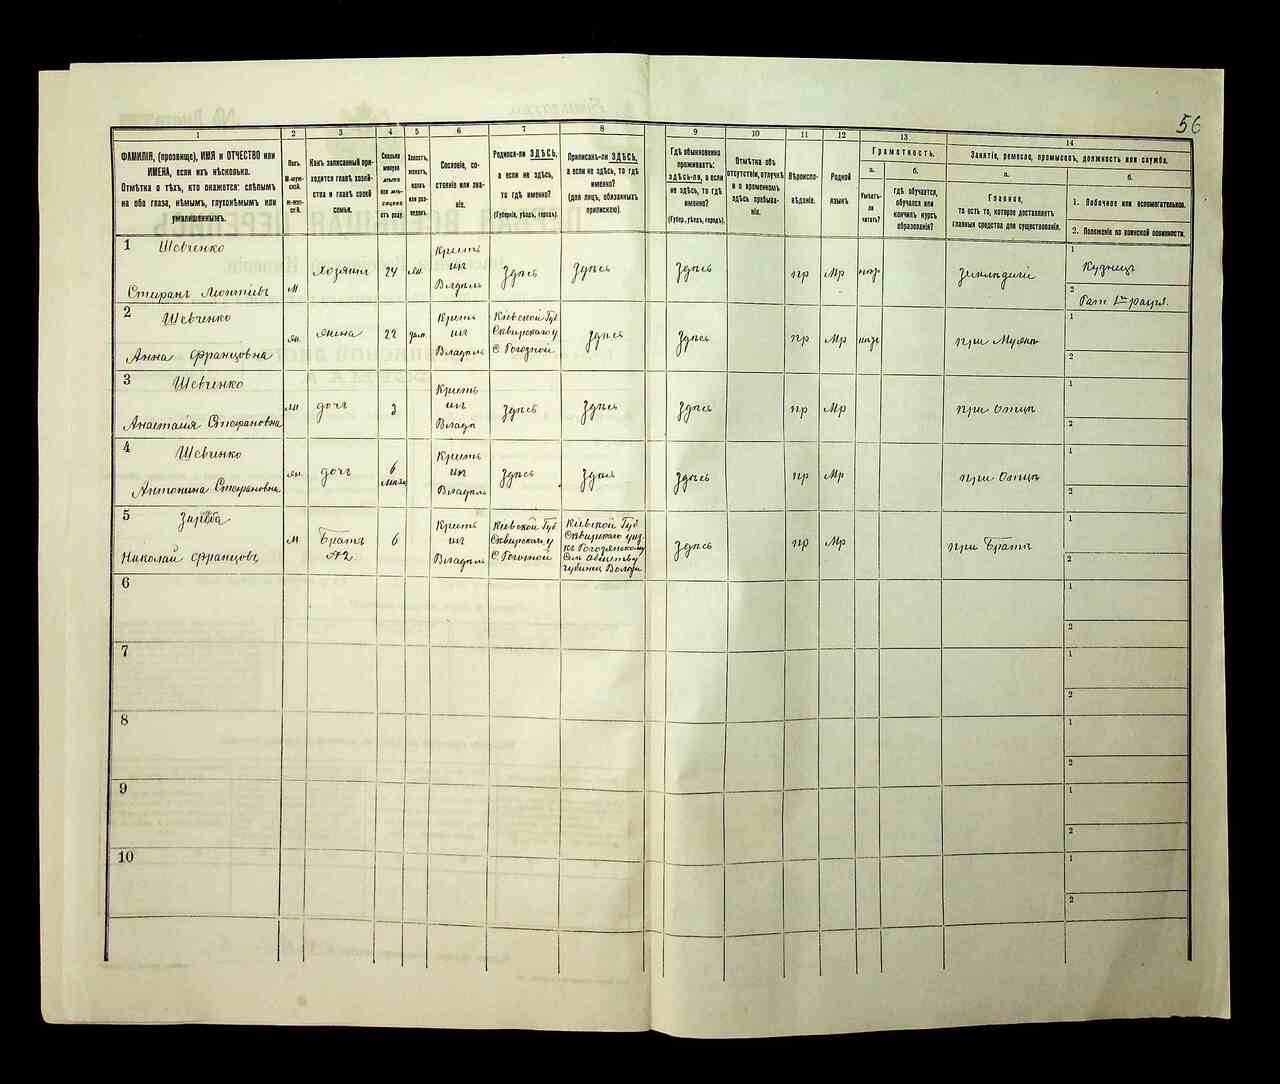 56
1
2
3
4
5
6
7
8
9
10
11
12
13
14
ФАМИЛІЯ, (прозвище), ИМЯ и ОТЧЕСТВО или
ИМЕНА, если ихъ нѣсколько.
Отмѣтка о тѣхъ, кто окажется: слѣпымъ
на оба глаза, нѣмымъ, глухонѣмымъ или
умалишеннымъ.
Полъ.
М-муж-
ской.
Ж-жен-
скій.
Какъ записанный при-
ходится главѣ хозяй-
ства и главѣ своей
семьи.
Сколько
минуло
лѣтъ
или мѣ-
сяцевъ
отъ роду.
Холостъ,
женатъ,
вдовъ
или раз-
веденъ.
Сословіе, со-
стояніе или зва-
ніе.
Родился-ли ЗДѢСЬ,
а если не здѣсь,
то гдѣ именно?
(Губернія, уѣздъ, городъ).
Приписанъ-ли ЗДѢСЬ,
а если не здѣсь, то гдѣ
именно?
(для лицъ, обязанныхъ
припискою).
Гдѣ обыкновенно
проживаетъ:
ЗДѢСЬ-ли, а если
не здѣсь, то гдѣ
именно?
(Губер., уѣздъ, городъ).
Отмѣтка объ
отсутствіи, отлучкѣ
и о временномъ
здѣсь пребыва-
ніи.
Вѣроиспо-
вѣданіе.
Родной
языкъ
Грамотность.
а.
Умѣетъ-
ли
читать?
б.
гдѣ обучается,
обучался или
кончилъ курсъ
образованія?
Занятіе, ремесло, промыселъ, должность или служба.
а.
Главное,
то есть то, которое доставляетъ
главныя средства для существованія.
б.
1. Побочное или вспомогательное.
2. Положеніе по воинской повинности.
1
Шевченко
Стефанъ Леонтіевъ
М
хозяинъ
24
жн.
Крестьян
изъ
Владѣль
Здѣсь
Здѣсь
Здѣсь
пр
Мр
Земледѣліе
1
Кузнецъ
2
Рат. 1го разря.
2
Шевченко
Анна Францовна
жн.
жена
22
зам.
Кресть
изъ
Владѣль
Кіевской Губ
Сквирскаго у
Здѣсь
Здѣсь
пр
Мр
при Мужѣ
1
2
3
Шевченко
Анастасія Стефановна
жн
дочь
Кресть
изъ
Владѣ
Здѣсь
Здѣсь
Здѣсь
пр
Мр
при Отцѣ
1
2
4
Шевченко
Антонина Стефановна
жн.
дочь
6
Кресть
изъ
Владѣль
Здѣсь
Здѣсь
Здѣсь
пр
Мр
при Отцѣ
1
2
5
Николай Францовъ
М
Братъ
№2
6
Кресть
изъ
Владѣль
Кіевской Губ
Сквирскаго у
Кіевской Губ
Сквирскаго уѣз
Здѣсь
пр
Мр
при Братѣ
1
2
6
1
2
7
1
2
8
1
2
9
1
2
10
1
2